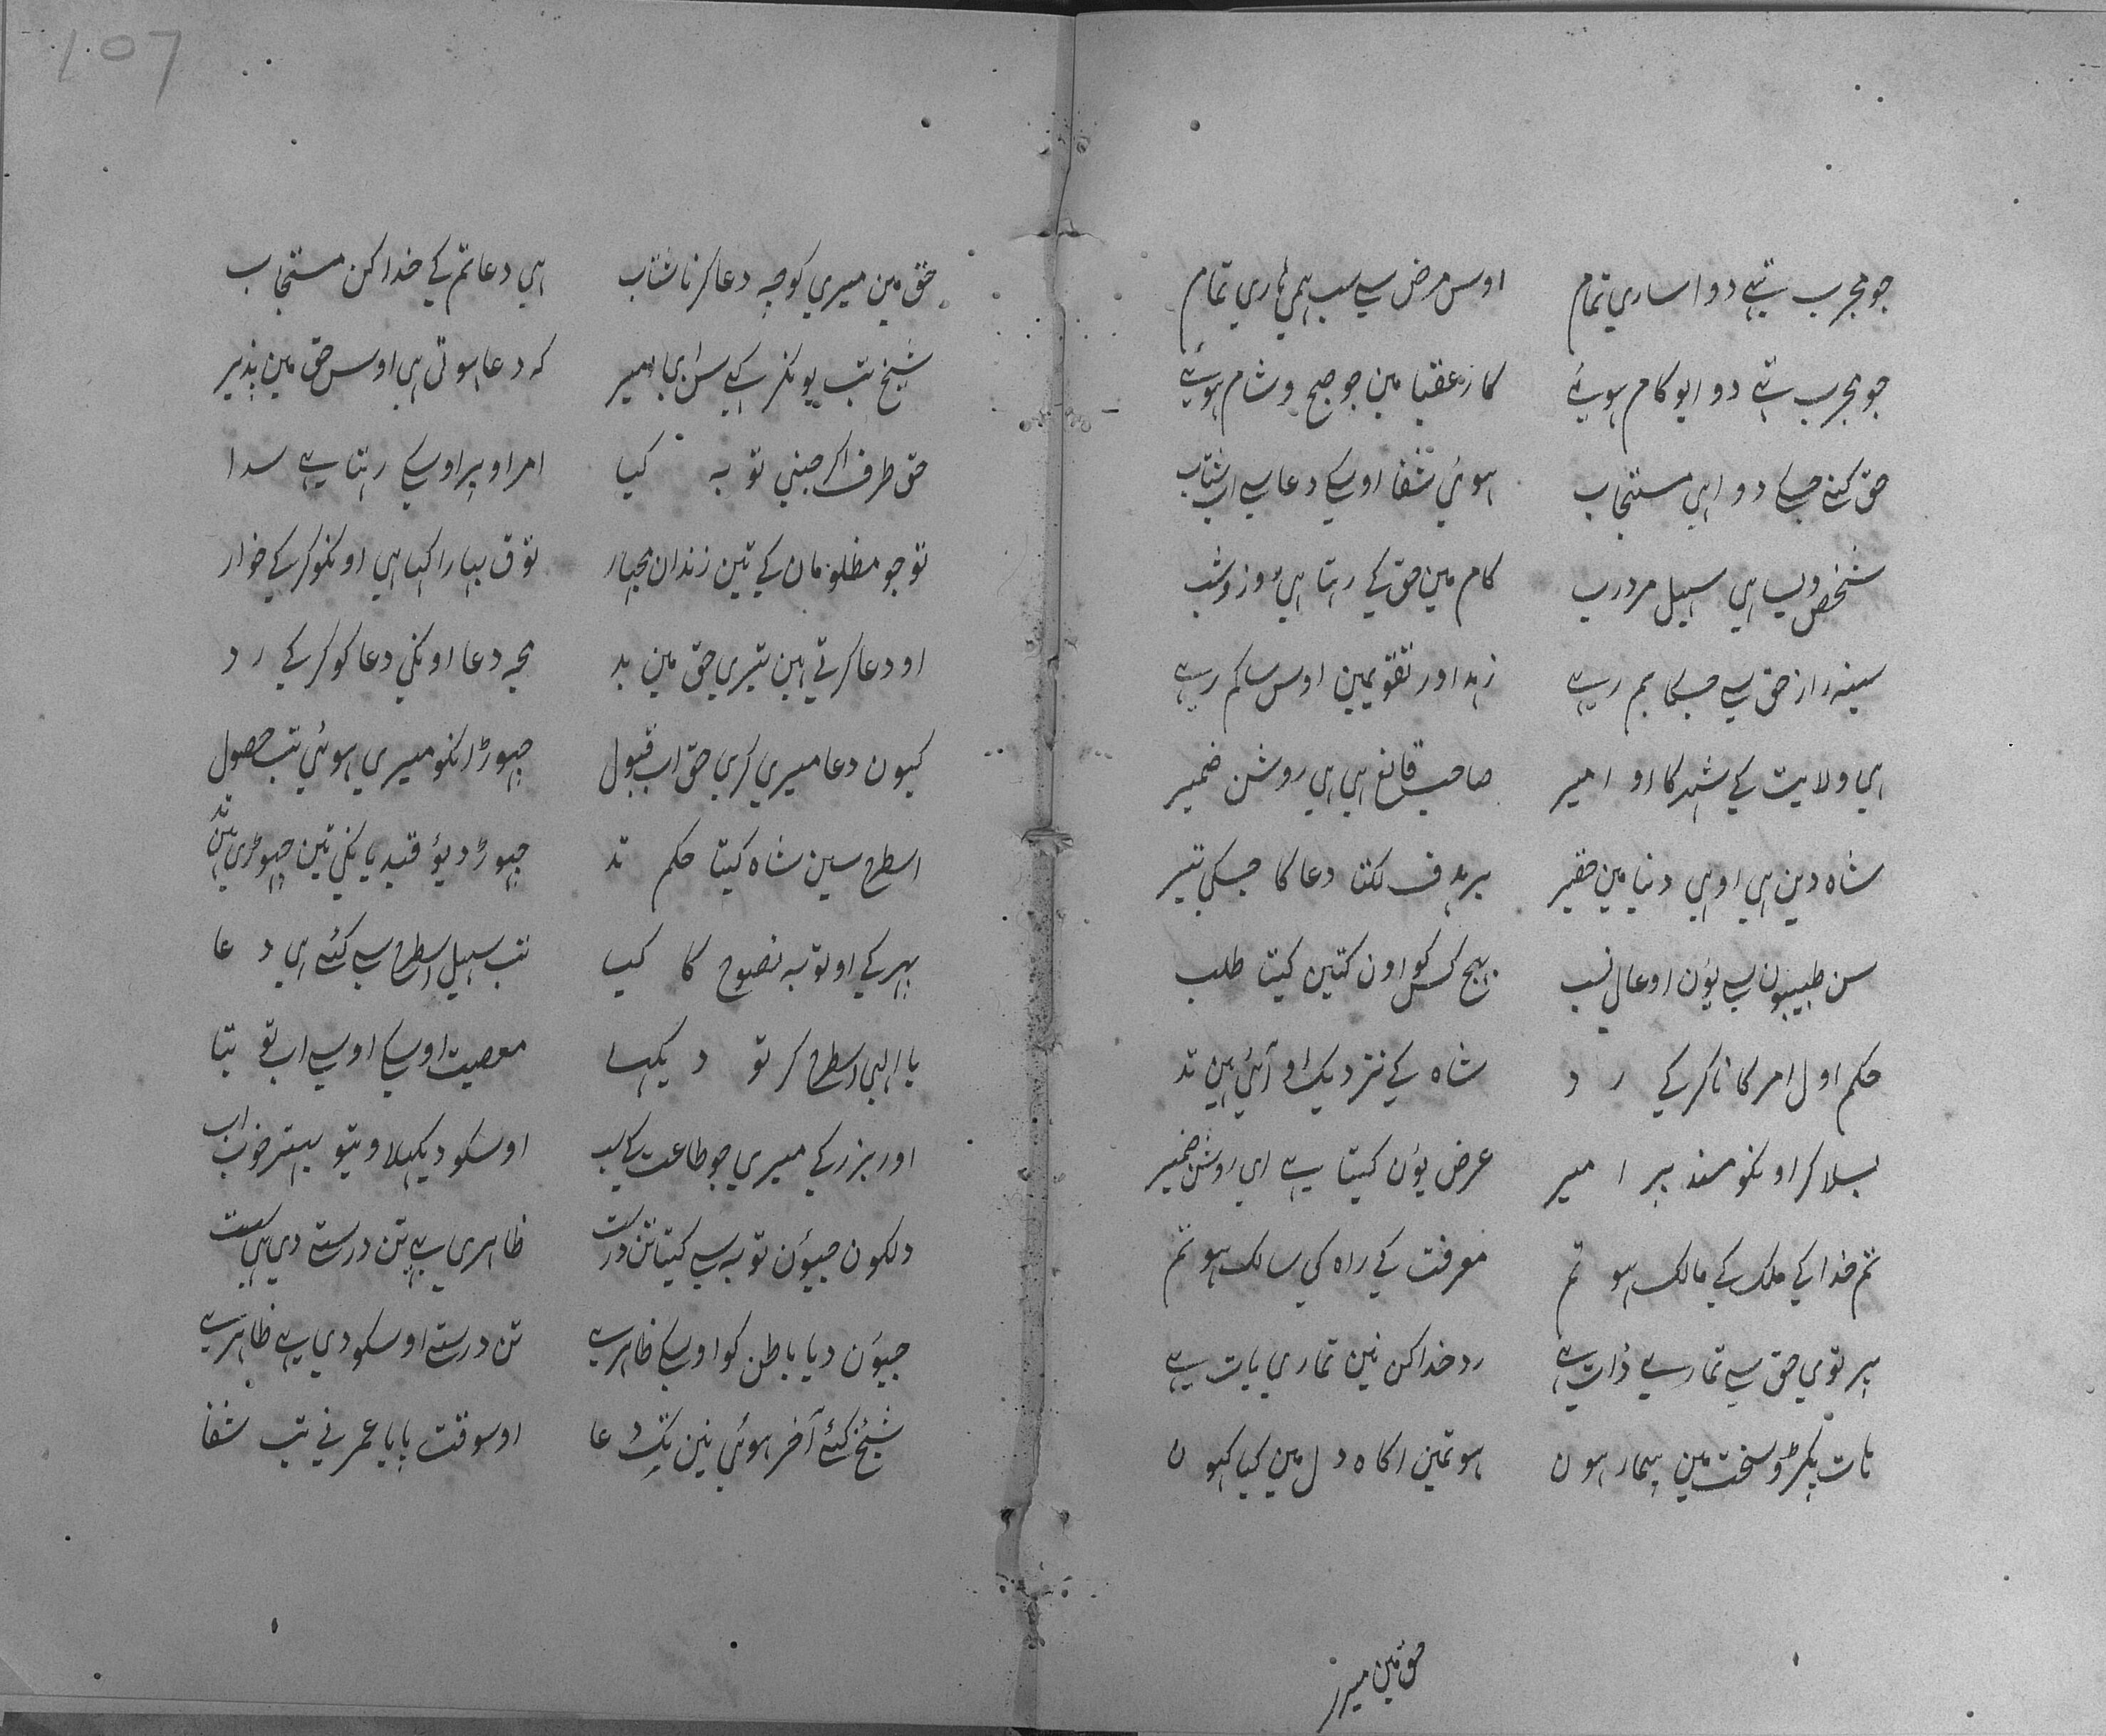 107
جو مجرب تہے دوا ساری تمام اوس مرض سے سب ہمی ہاری تمام
جو مجرب تہے دوا یو کام ہوئے کار عقبا مین جو صبح و شام ہوئے
حق کنے جسکے دوا ہی مستجاب ہوئی شفا اوسکے دعا سے اب شتاب
شخص ویسا ہی سہیل مرد رب کام مین حق کے رہتا ہی روز و شب
سینہ راز حق سے جسکا بم رہے زہد اور تقویمین اوس سا کم رہے
ہی ولایت کے شہر کا او امیر صاحب قانع ہی ہی روشن ضمیر
شاہ دین ہی او ہی دنیا مین حقیر بر ہدف لکتا دعا کا جسکی تیر
سن طبیبون سے یؤن او عالی نسب بہیج کس کو اون کتین کیتا طلب
حکم اول امر کا نا کر کے رد شاہ کے نزدیک او آئی ہین تد
بسلا کر اونکو مسند پر امیر عرض یؤن کیتا ہے ای روشن ضمیر
تم خدا کے ملک کے مالک ہو تم معرفت کے راہ کی سالک ہو تم
پر توی حق سے تمارے ذات ہے رد خدا کن نین تماری بات ہے
ہات پکڑو سخت مین بیمار ہون ہو تمین اکاہ دل مین کیا کہون
حق مین میرے
حق مین میری کوچہ دعا کرنا شتاب ہی دعا تم کے خدا کن مستجاب
شیخ تب یو نکر کہے سن ای امیر کہ دعا ہوتی ہی اوس حق مین پذیر
حق طرف اکر جنی توبہ کیا امر اوپر اوسکے رہتا ہے سدا
تو جو مظلومان کے تین زندان بچار توق بہارا کیا ہی اونکو کر کے خوار
او دعا کرتے ہین تیری حق مین بد مجہ دعا اونکی دعا کو کر کے رد
کیون دعا میری کری حق اب قبول چہوڑ انکو میری ہوئی تب حصول
اسطرح سین شاہ کیتا حکم تد چہوڑ دیؤ قیدیانکی تین چہوڑی ہین تد
پہر کے او توبہ نصوح کا کیا تب سہیل اسطرح سے کئے ہی دعا
یا الہی اسطرح کر تو دیکہا معصیت اوسکے اوسے اب تو بتا
اور بزرکے میری جو طاعت کے سب اوسکو دیکہلا ویتو بہتر خوب اب
دلکون جیؤن توبہ سے کیتا تن درست ظاہری ہے تن درستے دی ہی ست
جیؤن دیا باطن کو اوسکے ظاہر ہے تن درستے اوسکو دی ہے ظاہر ہے
شیخ کئے آخر ہوئی نین تک دعا اوسوقت پایا عمر نی تب شفا